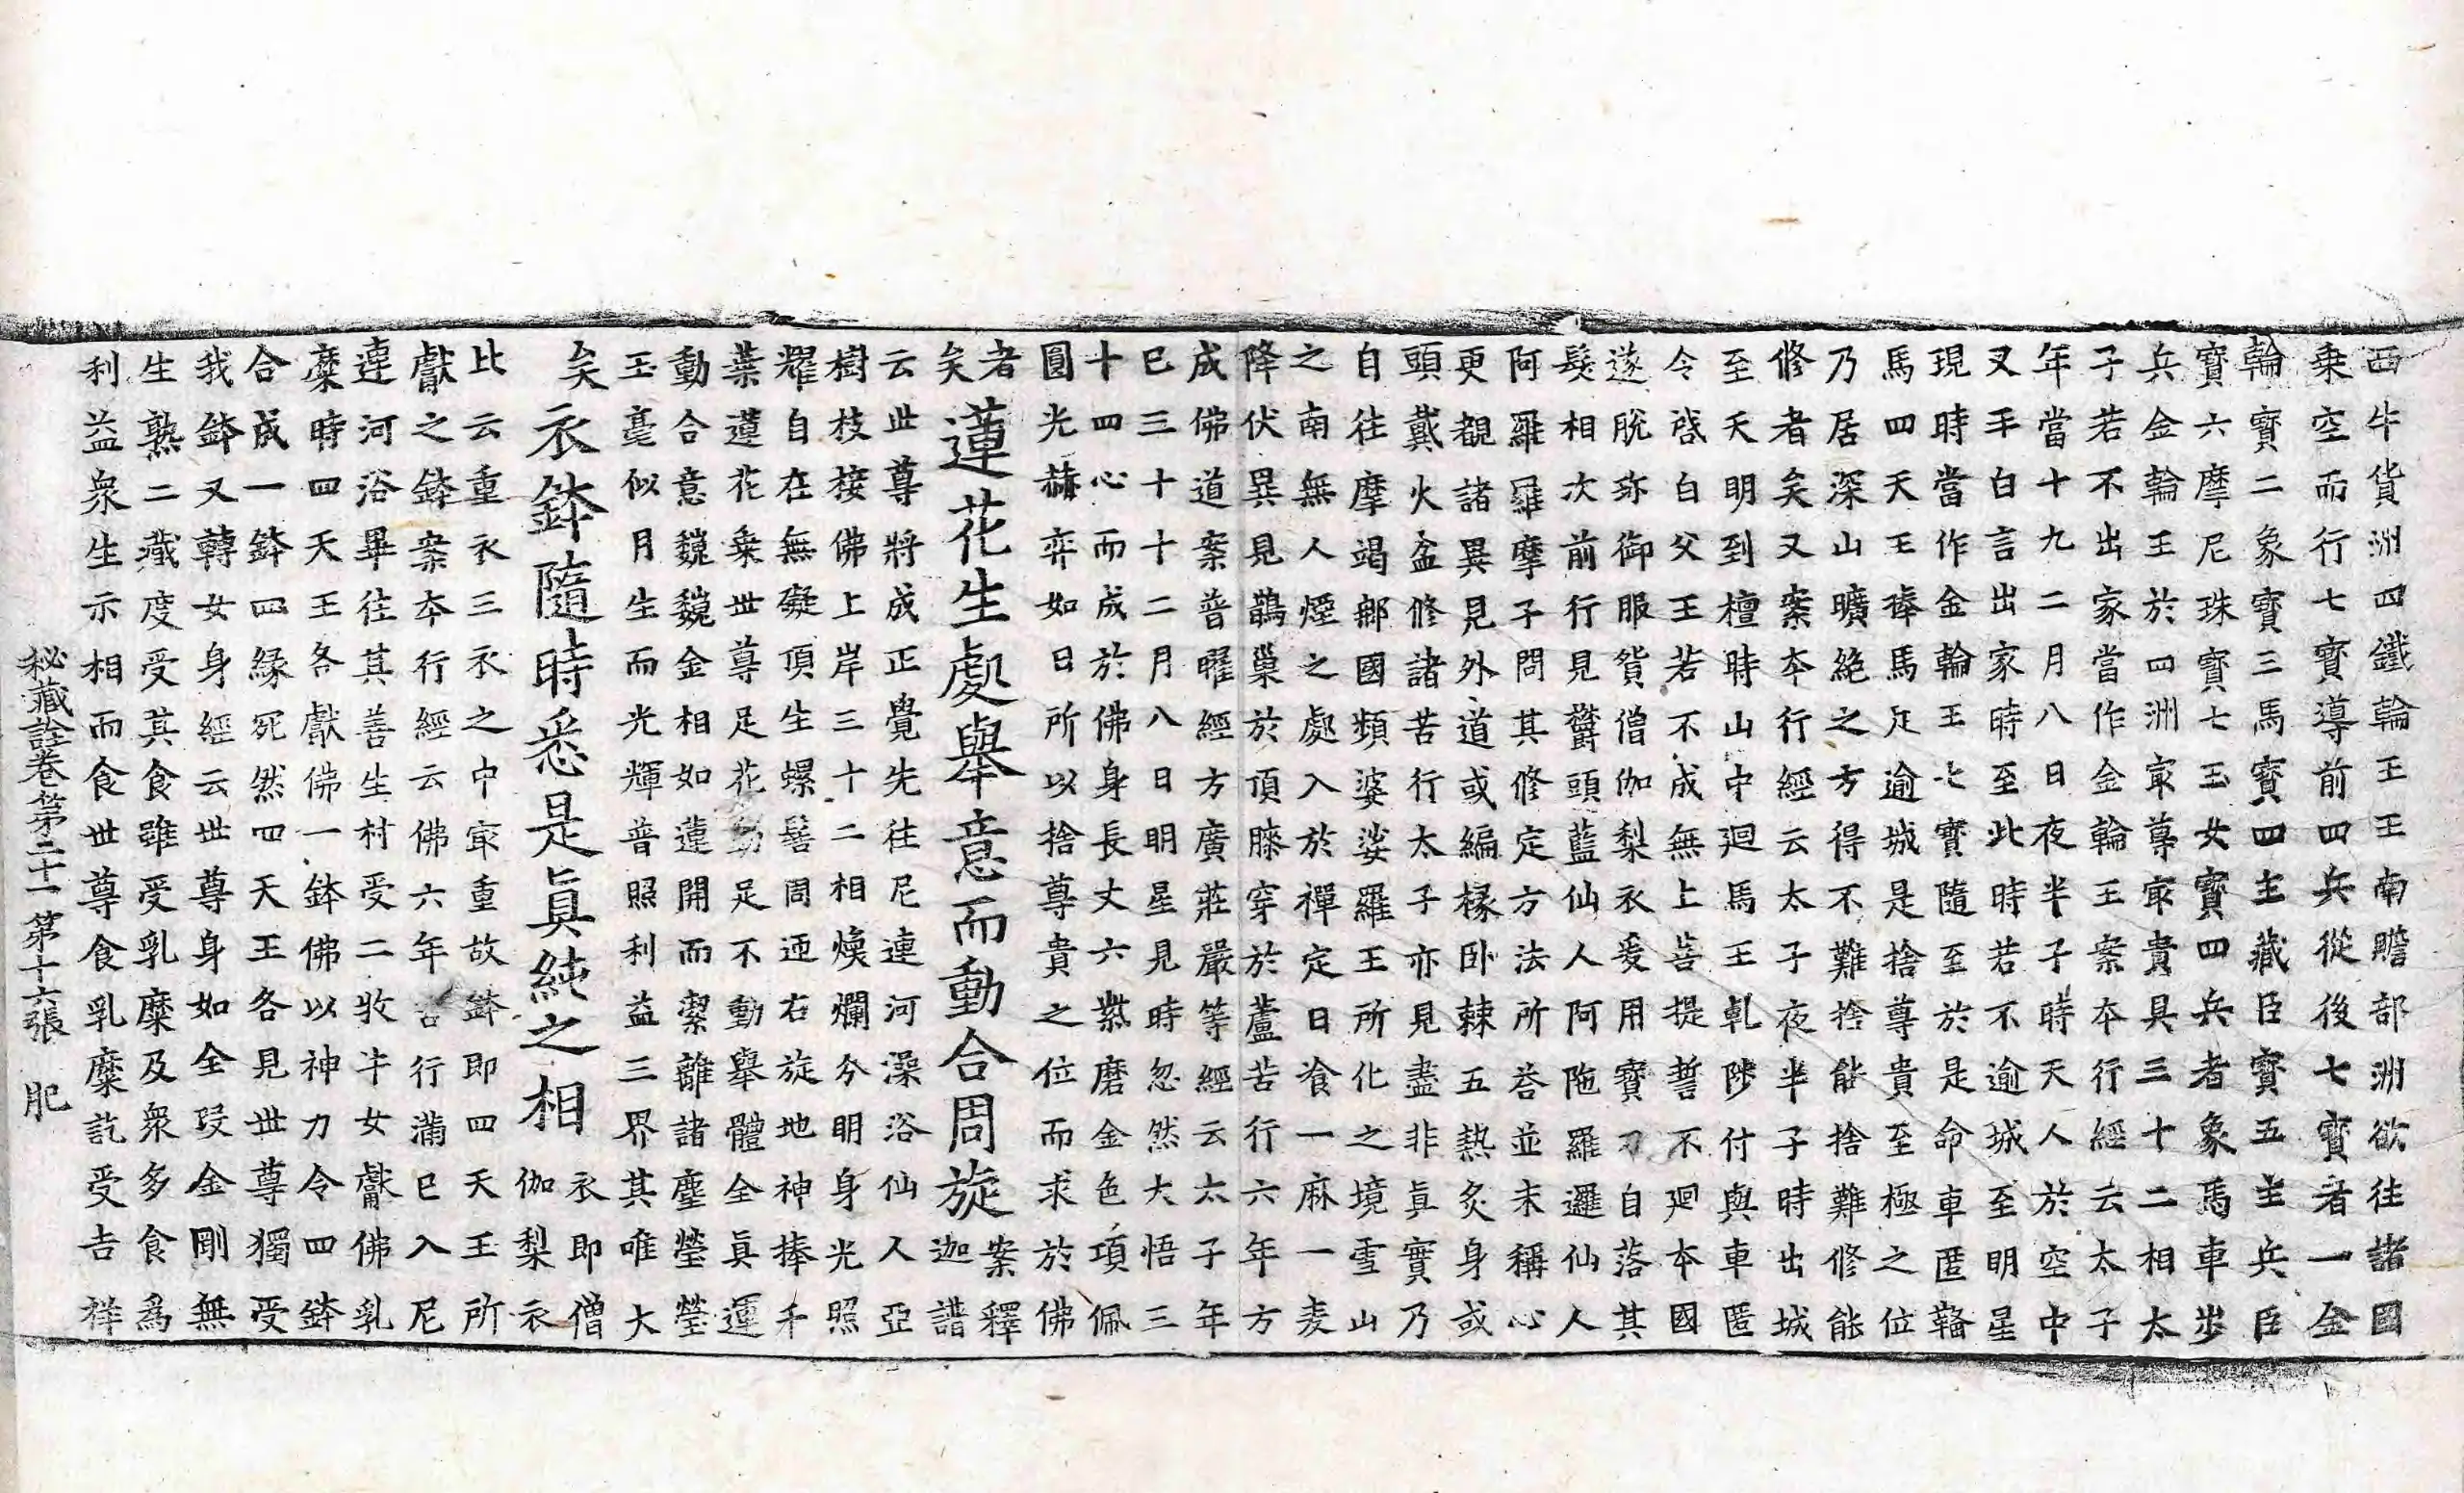 西牛貨洲四鐵輪王王南贍部洲欲往諸國
乗空而行七寳導前四兵從後七寳者一金
輪寳二象寳三馬寳四主藏臣寳五主兵臣
寳六摩尼珠寳七玉女寳四兵者象馬車步
兵金輪王於四洲㝡尊㝡貴具三十二相太
子若不出家當作金輪王案本行經云太子
年當十九二月八日夜半子時天人於空中
叉手白言出家時至此時若不逾城至明星
現時當作金輪王七寳隨至於是命車匿鞴
馬四天王捧馬足逾城是捨尊貴至極之位
乃居深山曠絶之方得不難捨能捨難修能
修者矣又案本行經云太子夜半子時出城
至天明到檀特山中廻馬王乹陟付與車匿
令啓白父王若不成無上菩提誓不廻本國
遂脫珎御服貿僧伽梨衣爰用寳刀自落其
髮相次前行見欝頭藍仙人阿陁羅邏仙人
阿羅羅摩子問其修定方法所荅並未稱心
更覩諸異見外道或編椽卧棘五熱炙身或
頭戴火盆修諸苦行太子亦見盡非真實乃
自往摩竭鄉國頻婆娑羅王所化之境雪山
之南無人煙之處入於禪定日飡一麻一麦
降伏異見鵲巢於頂膝穿於蘆苦行六年方
成佛道案普曜經方廣莊嚴等經云太子年
巳三十十二月八日明星見時忽然大悟三
十四心而成於佛身長丈六紫磨金色項佩
圓光赫弈如日所以捨尊貴之位而求於佛
者
矣蓮花生處舉意而動合周旋案釋
迦譜
云世尊將成正覺先往尼連河澡浴仙人亞
樹枝接佛上岸三十二相煥爛分明身光照
耀自在無礙頂生螺髻周迊右旋地神捧千
葉蓮花乗世尊足花動足不動舉體全真運
動合意巍巍金相如蓮開而潔離諸塵瑩瑩
玉毫似月生而光輝普照利益三界其唯大
矣衣鉢隨時悉是眞純之相衣即僧
伽梨衣
比云重衣三衣之中㝡重故鉢即四天王所
獻之鉢案本行經云佛六年苦行滿巳入尼
連河浴畢往其善生村受二牧牛女獻佛乳
糜時四天王各獻佛一鉢佛以神力令四鉢
合成一鉢四緣宛然四天王各見世尊獨受
我鉢又轉女身經云世尊身如全叚金剛無
生熟二藏度受其食雖受乳糜及衆多食爲
利益衆生示相而食世尊食乳糜訖受吉祥
秘藏詮卷第二十一 第十六張 肥